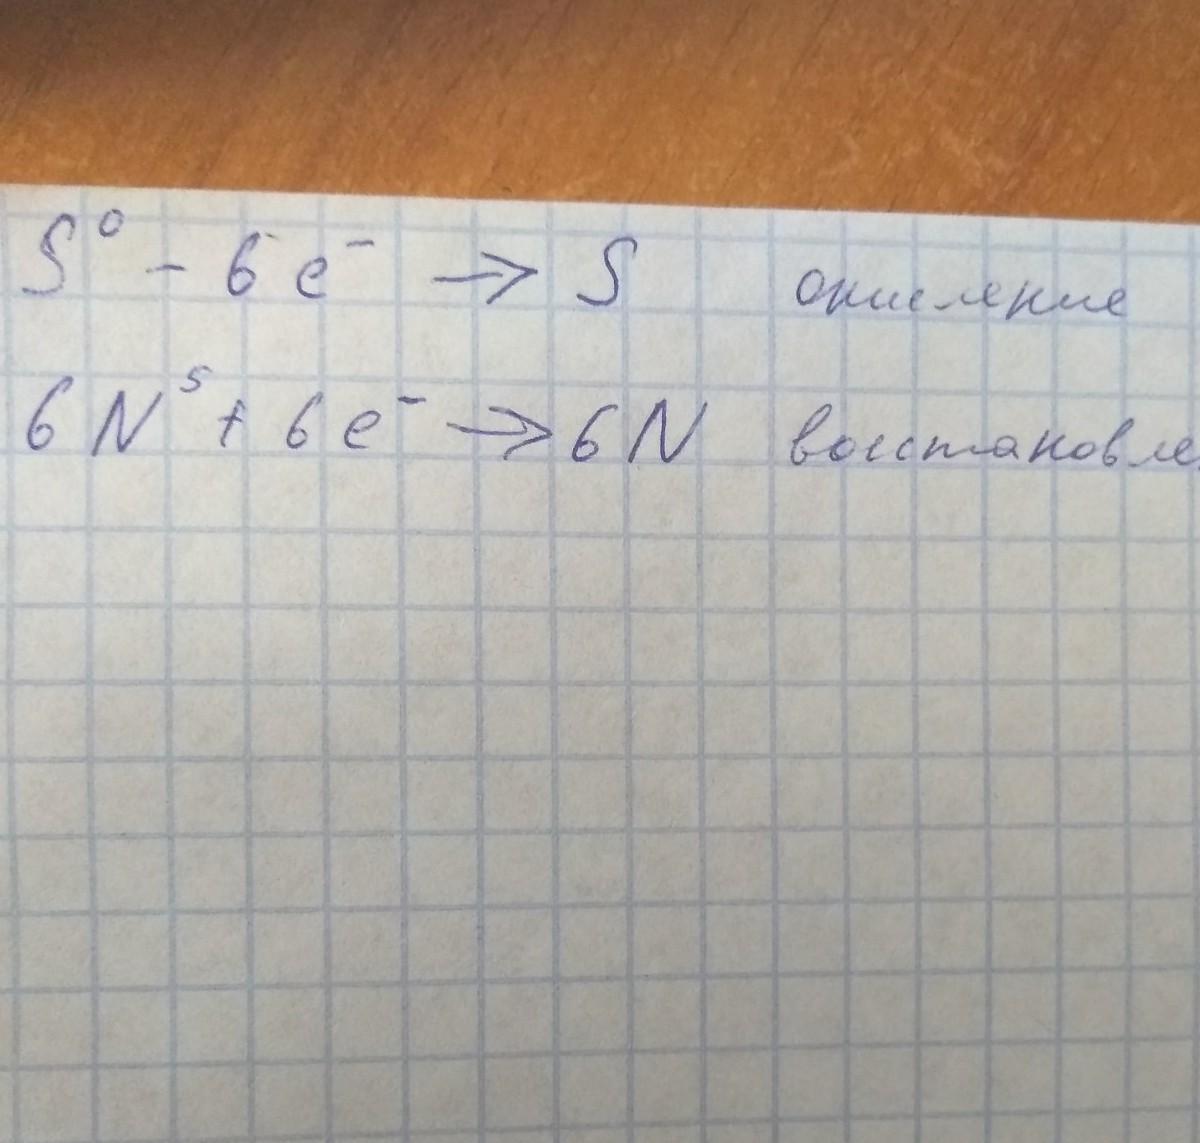 S⁰ - 6 e⁻ → S окисление
6 N⁵ + 6 e⁻ → 6 N восстановле